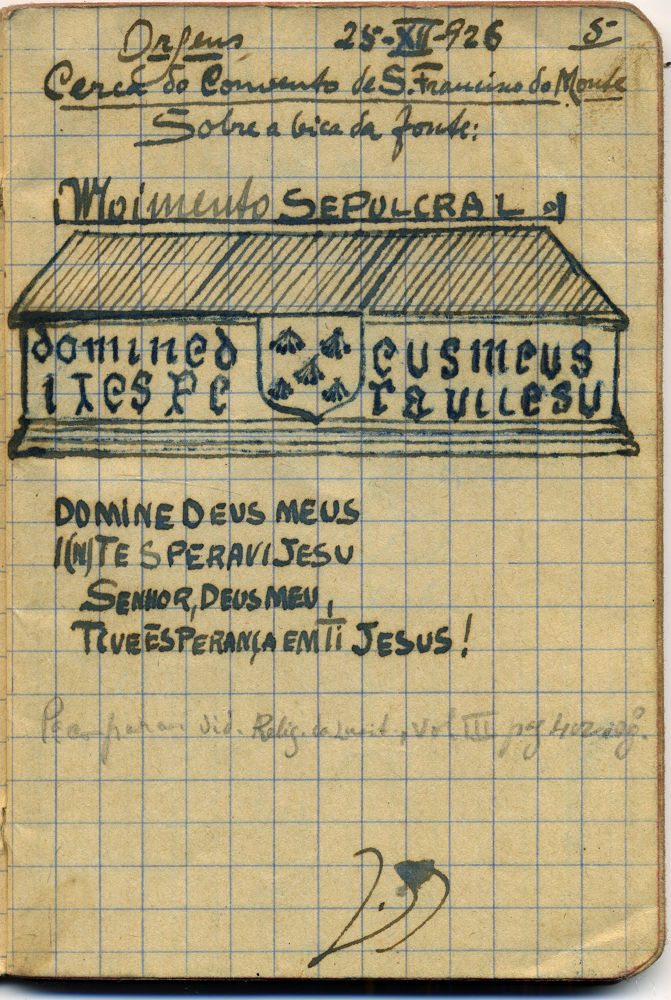 Orgens, 25-XII-926 5-
Cerca do Convento de S. Francisco do Monte
Sobre a bica da fonte:
Moimento SEPULCRAL
domined eusmeus
ITESPE
DOMINE DEUS MEUS
I(N)TE SPERAVI JESU
SENHOR, DEUS MEU,
TIVE ESPERANÇA EM TI JESUS!
vid. Relig. da Lusit., Vol. III pag